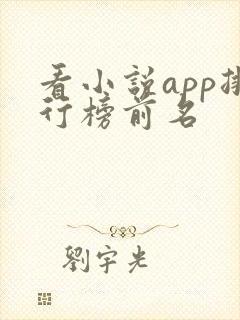 看小説app排
行榜前名
劉宇光